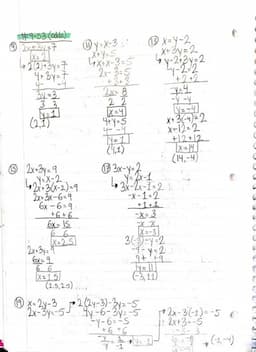 #9-53 (odds)
⑨ 2x+3y=7
x=2
2(2)+3y=7
4+3y=7
-4 -4
3y=3
3 3
y=1
(2,1)
⑪ y=x-3
x+y=5
x+x-3=5
2x-3=5
+3 +3
2x=8
2 2
x=4
4+y=5
-4 -4
y=1
(4,1)
⑬ x=y-2
x+3y=2
y-2+3y=2
+2 +2
y=4
y=-4
x+3(-4)=2
x-12=2
+12 +12
x=14
(14,-4)
⑮ 2x+3y=9
y=x-2
2x+3(x-2)=9
2x+3x-6=9
6x-6=9
+6 +6
6x=15
6 6
x=2.5
2x+3y=9
6x=9
6 6
x=1.5
⑰ 3x-y=2
y=2x-1
3x-2x-1=2
-x-1=2
+1 +1
-x=3
x=-3
3(-3)-y=2
-9-y=2
y=11
(-3,11)
⑲ x=2y-3
2x-3y=-5
2(2y-3)-3y=-5
4y-6-3y=-5
-y-6=-5
+6 +6
2x-3(-1)=-5
2x+3=-5